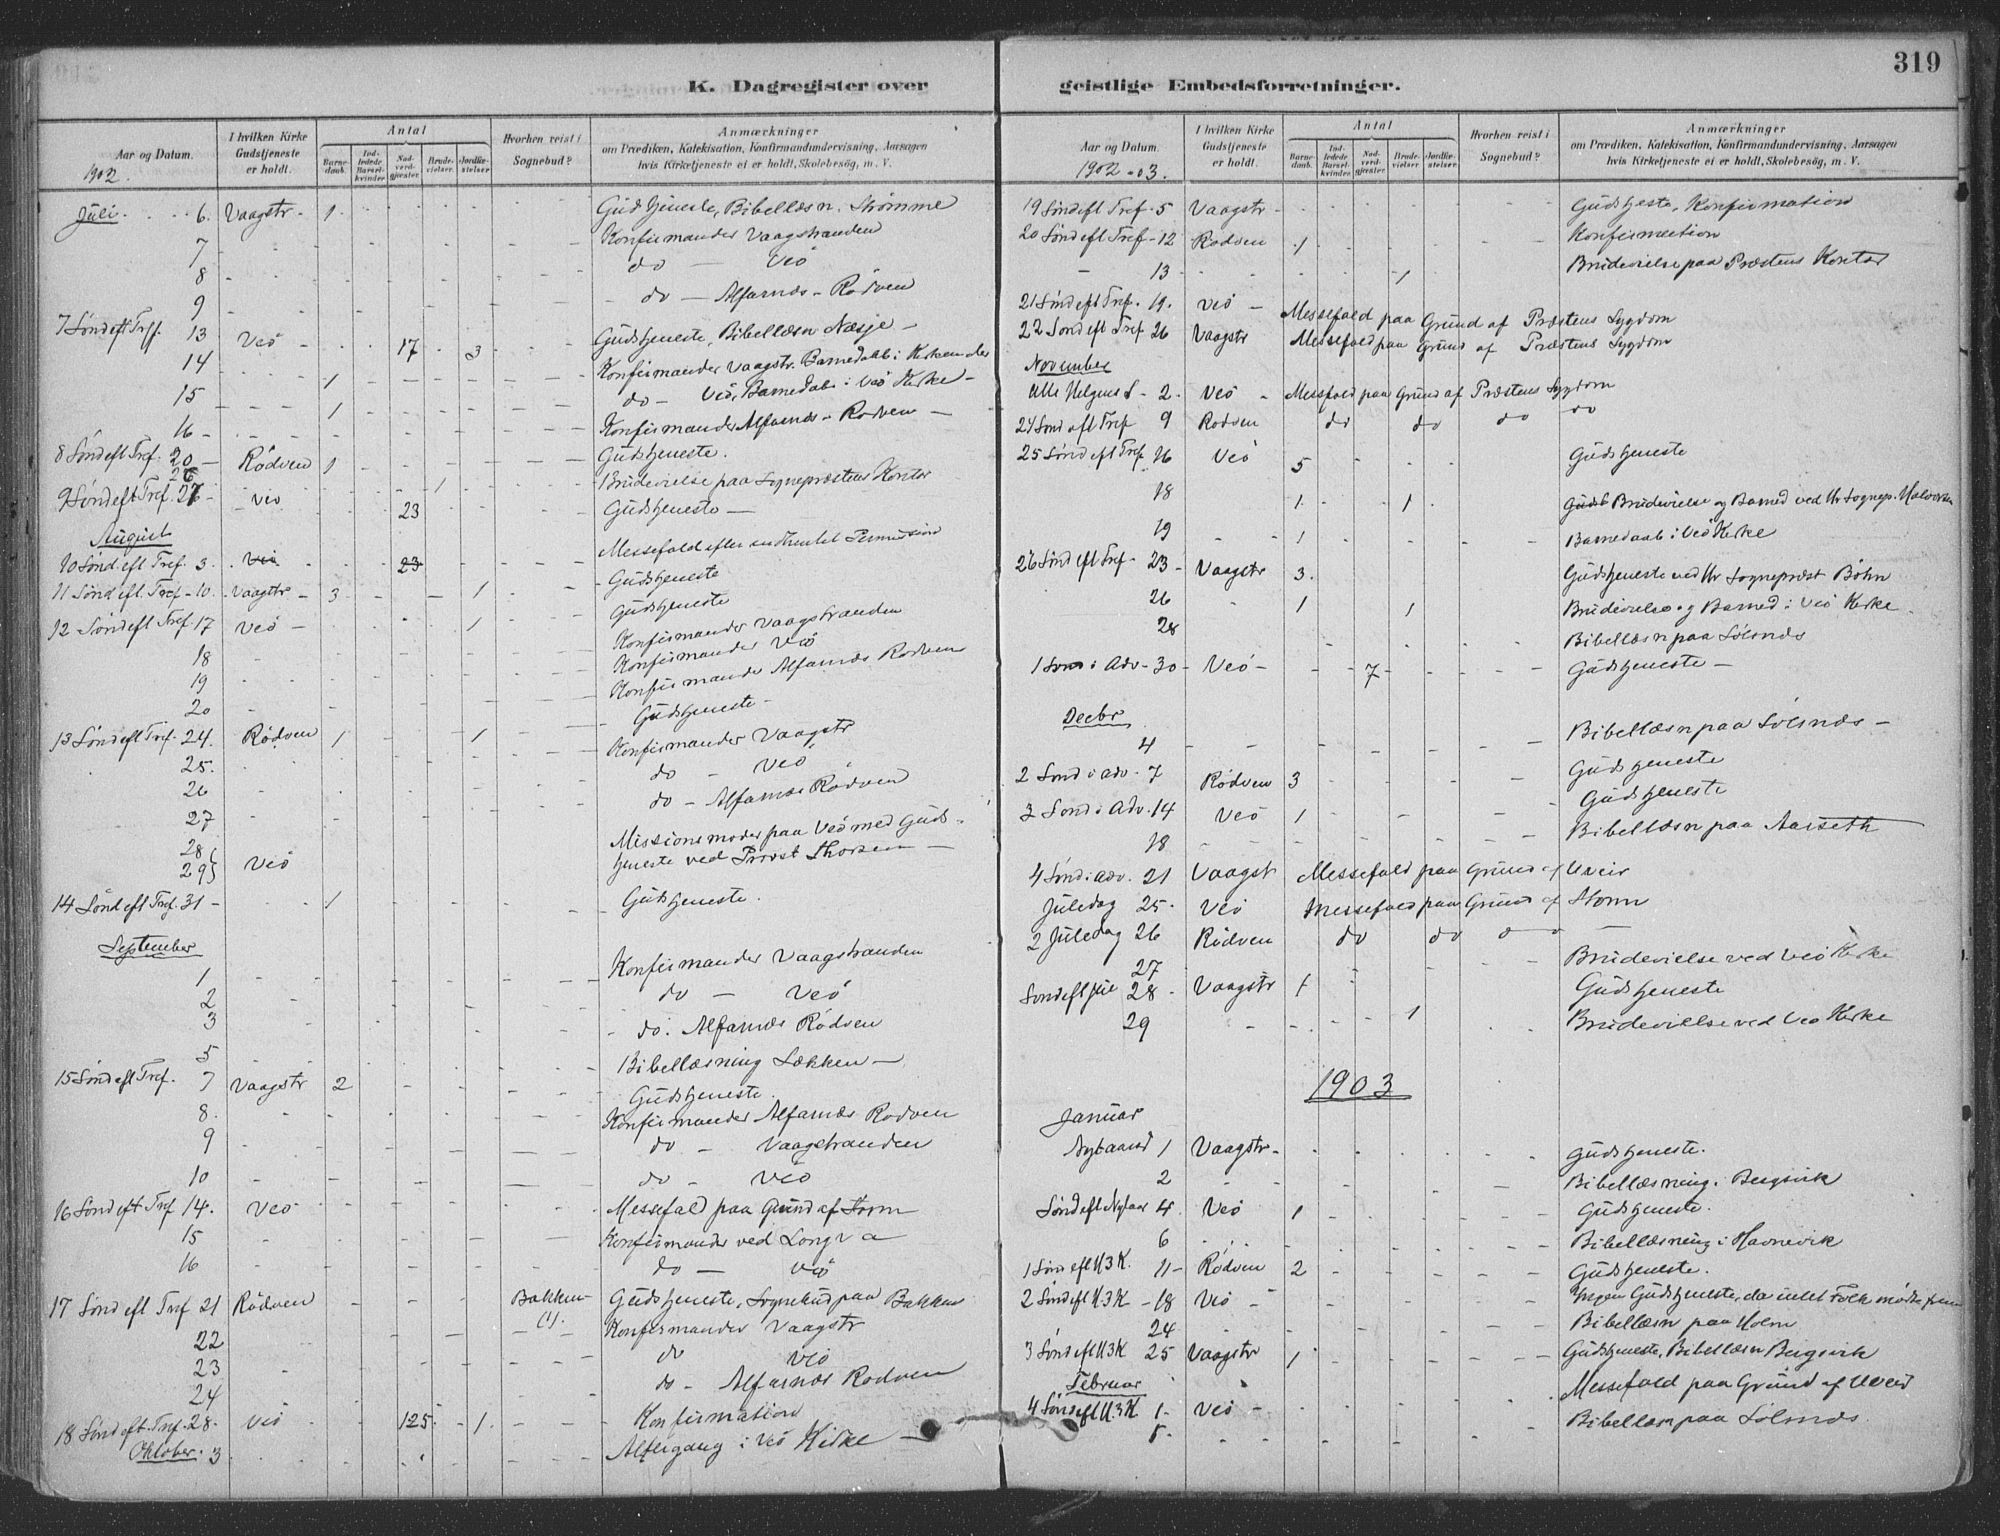 319
K. Dagregister over geistlige Embedsforretninger.
Aar og Datum.
1902.
I hvilken Kirke Gudstjeneste er holdt.
Antal
Barnedaab.
Indledede Barselkvinder.
Nadverdgjæster.
Brudevielser.
Jordfæstelser
Hvorhen reist i Sognebud?
Anmærkninger
om Prædiken, Katekisation, Konfirmandundervisning, Aarsagen
hvis Kirketjeneste ei er holdt, Skolebesög, m. V.
Juli 6 Vaagstr 1 Gudstjeneste, Bibellæsn. Strømme
7 Konfirmander Vaagstranden
8 do — Veö
9 do — Alfarnæs - Rödven
7 Sönd eft Tref. 13 Veö 17 3 Gudstjeneste, Bibellæsn Næsje
14 1 Konfirmander Vaagstr. Barnedaab i Kirken der
15 1 do — Veö, Barnedaab i Veö Kirke
16 Konfirmander Alfarnæs - Rödven
8 Sönd eft Tref. 20 Rödven 1 Gudstjeneste.
26 1 Brudevielse paa Sognepræstens Kontor
9 Sönd eft Tref. 27 Veö 23 Gudstjeneste —
August
10 Sönd. eft Tref. 3. Veö 23 Messefald efter
11 Sönd eft. Tref 10. Vaagstr 3 1 Gudstjeneste
12 Sönd eft Tref 17 Veö 1 Gudstjeneste
18 Konfirmander Vaagstranden
19 Konfirmander Veö
20 Konfirmande Alfarnæs Rödven
13 Sönd eft Tref. 24. Rödven 1 1 Gudstjeneste
25. Konfirmander Vaagstr
26 do - Veö
27 do - Alfarnæs Rödven
28 Missionsmøder paa Veö med Guds-
29 Veö tjeneste ved Provst Thorsen
14 Sönd eft Tref. 31 1 Gudstjeneste.
September
1 Konfirmander Vaagstranden
2 do — Veö
3 do. Alfarnæs Rödven
5 Bibellæsning Løkken
15 Sönd eft Tref. 7 Vaagstr 2 Gudstjeneste.
8. Konfirmander Alfarnæs Rödven
9 do - Vaagstranden
10 do - Veö
16 Sönd eft Tref 14. Veö Messefald paa Grund af Storm
15 Konfirmander ved Longva
16 do — Veö
17 Sönd eft Tref 21 Rödven Bakken (1). Gudstjeneste, Sognebud paa Bakken
22 Konfirmander Vaagstr
23 do Veö
24 do - Alfarnæs Rödven
18 Sönd eft Tref. 28. Veö 125 1. Konfirmation
Oktober. 3 Altergang i Veö Kirke
Aar og Datum.
1902-03.
I hvilken Kirke Gudstjeneste er holdt.
Antal
Barnedaab.
Indledede Barselkvinder.
Nadverdgjæster.
Brudevielser.
Jordfæstelser.
Hvorhen reist i Sognebud?
Anmærkninger
om Prædiken, Katekisation, Konfirmandundervisning, Aarsagen
hvis Kirketjeneste ei er holdt, Skolebesög, m. V.
19 Sönd eft Tref. 5 Vaagstr Gudstjeste, Konfirmation
20 Sönd eft Tref 12 Rödven 1 Konfirmation
13 1 Brudevielse paa Præstens Kontor
21 Sönd eft Tref. 19. Veö Messefald paa Grund af Præstens Sygdom
22 Sönd eft Tref 26 Vaagstr Messefald paa Grund af Præstens Sygdom
November
Alle Helgens S 2. Veö Messefald paa Grund af Præstens Sygdom
24 Sönd eft Tref 9 Rödven do do do do
25 Sönd eft Tref 16 Veö 5 Gudstjeneste
18 1 1 Gudst Brudevielse og Barned ved Hr Sognep. Halvorsen
19 1 Barnedaab i Veö Kirke
26 Sönd eft Tref 23 Vaagstr 3. Gudstjeneste ved Hr Sognepræst Böhn
26 1 1 Brudevielse og Barned i Veö Kirke.
28 Bibellæsn paa Sölsnæs
1 Sønd i Adv 30 Veö 7 Gudstjeneste
Decbr
4 Bibellæsn paa Sölsnæs
2 Sønd i Adv. 7 Rödven 3 Gudstjeneste
3 Sønd i Adv. 14 Veö 1 Gudstjeneste
18 Bibellæsn paa Aarseth
4 Sønd i adv. 21 Vaagst Messefald paa Grund af Uveir
Juledag 25. Veö Messefald paa Grund af Storm
2 Juledag 26 Rödven do do do —
27 Brudevielse ved Veö Kirke
Sönd eft Jul 28 Vaagstr 1 Gudstjeneste
29 1 Brudevielse ved Veö Kirke
1903
Januar
Nytaarsd 1 Vaagstr Gudstjeneste.
2 Bibellæsning. Bergsvik
Sönd eft Nytaar 4. Veö 1 Gudstjeneste.
6 Bibellæsning i Havnevik
1 Sönd eft H3K. 11 Rödven 2 Gudstjeneste.
2 Sönd eft H3K 18 Veö Ingen Gudstjeneste, da intet Folk mødte frem
24 Bibellæsn paa Holm
3 Sönd eft H3K 25 Vaagstr 1 Gudstjeneste, Bibellæsn Bergsvik
Februar
4 Sönd eft H.3K 1 Veö Messefald paa Grund af Uveir
5. Bibellæsn paa Sölsnæs